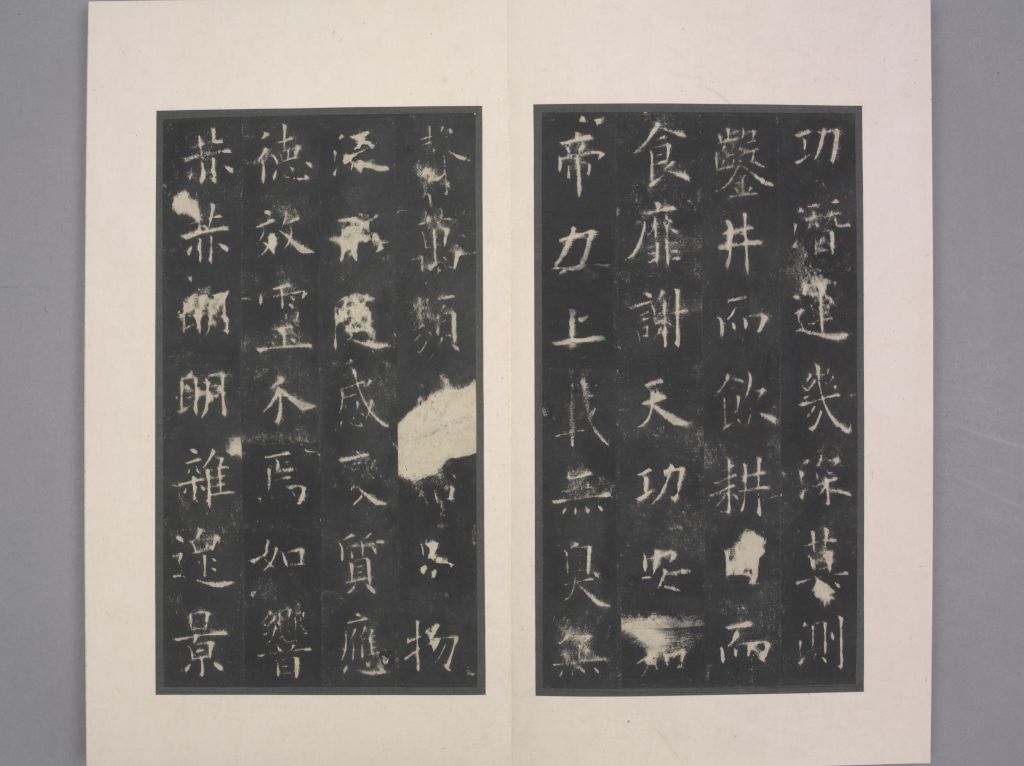 功潛運幾深莫測
鑿井而飲耕田而
食靡謝天功安知
帝力上載無臭無
聲萬類始品物
流形隨感變質應
德效靈介焉如響
赫赫明明雜遝景